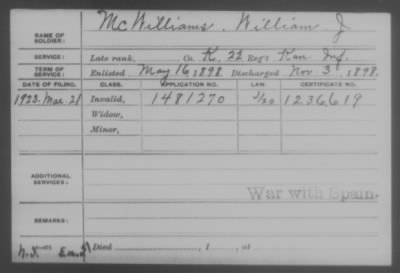 McWilliams, William J.
NAME OF SOLDIER:
SERVICE: Late rank, Co. K, 22 Reg't Kan Inf.
TERM OF SERVICE: Enlisted May 16, 1898 Discharged Nov 3, 1898.
DATE OF FILING. CLASS. APPLICATION NO. LAW. CERTIFICATE NO.
1923. Mar. 21 Invalid, 1481270 1236619
Widow,
Minor,
ADDITIONAL SERVICES:
War with Spain.
REMARKS:
Died , 1 , at